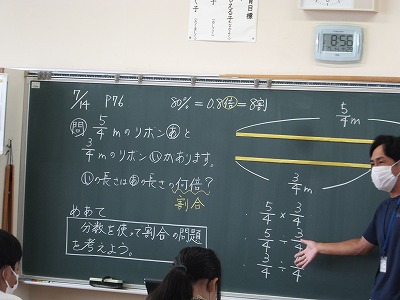 える子
く子
8:56
7/14 P76
80% = 0.8倍 = 8割
問 5/4 mのリボンあと
3/4 mのリボンいがあります。
いの長さはあの長さの何倍?
割合
めあて
分数を使って割合の問題
を考えよう。
5/4 m
3/4 m
・ 5/4 × 3/4
・ 5/4 ÷ 3/4
・ 3/4 ÷